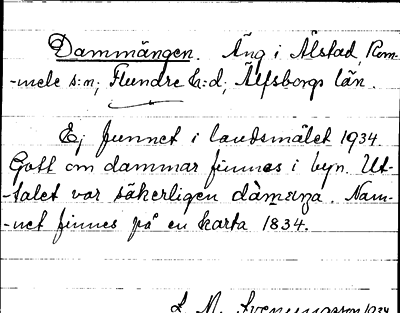 Dammängen. Äng i Ålstad, Rom-
-mele s:n; Flundre h:d, Älfsborgs län.
Ej funnet i landsmålet 1934.
Gott om dammar finnes i byn. Ut-
-talet var säkerligen
Nam-
-net finnes på en karta 1834.